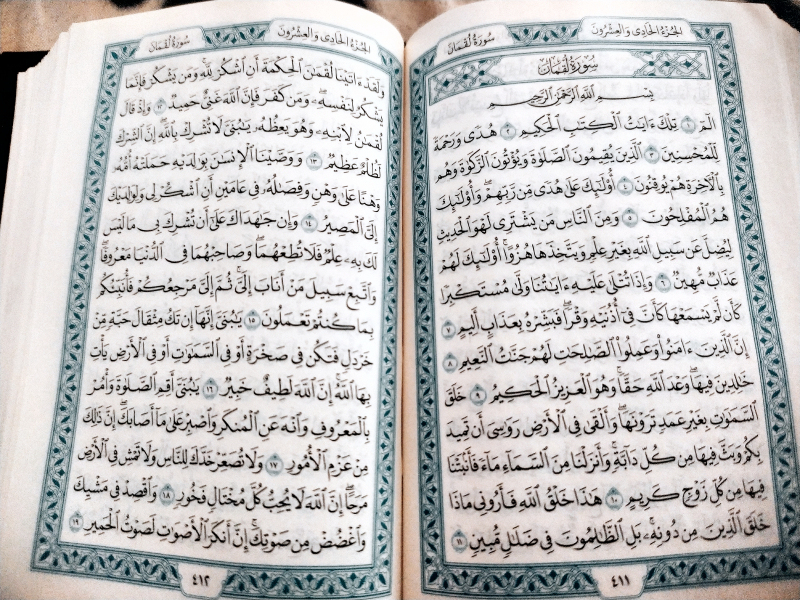 سُورَةُ لُقْمَانَ
الجُزْءُ الحَادِي وَالعِشْرُونَ
سُورَةُ لُقْمَانَ
بِسْمِ ٱللَّهِ ٱلرَّحْمَٰنِ ٱلرَّحِيمِ
الٓمٓ ١ تِلْكَ ءَايَٰتُ ٱلْكِتَٰبِ ٱلْحَكِيمِ ٢ هُدًى وَرَحْمَةً
لِّلْمُحْسِنِينَ ٣ ٱلَّذِينَ يُقِيمُونَ ٱلصَّلَوٰةَ وَيُؤْتُونَ ٱلزَّكَوٰةَ وَهُم
بِٱلْءَاخِرَةِ هُمْ يُوقِنُونَ ٤ أُو۟لَٰٓئِكَ عَلَىٰ هُدًى مِّن رَّبِّهِمْ ۖ وَأُو۟لَٰٓئِكَ
هُمُ ٱلْمُفْلِحُونَ ٥ وَمِنَ ٱلنَّاسِ مَن يَشْتَرِى لَهْوَ ٱلْحَدِيثِ
لِيُضِلَّ عَن سَبِيلِ ٱللَّهِ بِغَيْرِ عِلْمٍ وَيَتَّخِذَهَا هُزُوًا ۚ أُو۟لَٰٓئِكَ لَهُمْ
عَذَابٌ مُّهِينٌ ٦ وَإِذَا تُتْلَىٰ عَلَيْهِ ءَايَٰتُنَا وَلَّىٰ مُسْتَكْبِرًا
كَأَن لَّمْ يَسْمَعْهَا كَأَنَّ فِىٓ أُذُنَيْهِ وَقْرًا ۖ فَبَشِّرْهُ بِعَذَابٍ أَلِيمٍ ٧
إِنَّ ٱلَّذِينَ ءَامَنُوا۟ وَعَمِلُوا۟ ٱلصَّٰلِحَٰتِ لَهُمْ جَنَّٰتُ ٱلنَّعِيمِ ٨
خَٰلِدِينَ فِيهَا ۖ وَعْدَ ٱللَّهِ حَقًّا ۚ وَهُوَ ٱلْعَزِيزُ ٱلْحَكِيمُ ٩ خَلَقَ
ٱلسَّمَٰوَٰتِ بِغَيْرِ عَمَدٍ تَرَوْنَهَا ۖ وَأَلْقَىٰ فِى ٱلْأَرْضِ رَوَٰسِىَ أَن تَمِيدَ
بِكُمْ وَبَثَّ فِيهَا مِن كُلِّ دَآبَّةٍ ۚ وَأَنزَلْنَا مِنَ ٱلسَّمَآءِ مَآءً فَأَنۢبَتْنَا
فِيهَا مِن كُلِّ زَوْجٍ كَرِيمٍ ١٠ هَٰذَا خَلْقُ ٱللَّهِ فَأَرُونِى مَاذَا
خَلَقَ ٱلَّذِينَ مِن دُونِهِۦ ۚ بَلِ ٱلظَّٰلِمُونَ فِى ضَلَٰلٍ مُّبِينٍ ١١
٤١١
الجُزْءُ الحَادِي وَالعِشْرُونَ
سُورَةُ لُقْمَانَ
وَلَقَدْ ءَاتَيْنَا لُقْمَٰنَ ٱلْحِكْمَةَ أَنِ ٱشْكُرْ لِلَّهِ ۚ وَمَن يَشْكُرْ فَإِنَّمَا
يَشْكُرُ لِنَفْسِهِۦ ۖ وَمَن كَفَرَ فَإِنَّ ٱللَّهَ غَنِىٌّ حَمِيدٌ ١٢ وَإِذْ قَالَ
لُقْمَٰنُ لِٱبْنِهِۦ وَهُوَ يَعِظُهُۥ يَٰبُنَىَّ لَا تُشْرِكْ بِٱللَّهِ ۖ إِنَّ ٱلشِّرْكَ
لَظُلْمٌ عَظِيمٌ ١٣ وَوَصَّيْنَا ٱلْإِنسَٰنَ بِوَٰلِدَيْهِ حَمَلَتْهُ أُمُّهُۥ
وَهْنًا عَلَىٰ وَهْنٍ وَفِصَٰلُهُۥ فِى عَامَيْنِ أَنِ ٱشْكُرْ لِى وَلِوَٰلِدَيْكَ
إِلَىَّ ٱلْمَصِيرُ ١٤ وَإِن جَٰهَدَاكَ عَلَىٰٓ أَن تُشْرِكَ بِى مَا لَيْسَ
لَكَ بِهِۦ عِلْمٌ فَلَا تُطِعْهُمَا ۖ وَصَاحِبْهُمَا فِى ٱلدُّنْيَا مَعْرُوفًا ۖ
وَٱتَّبِعْ سَبِيلَ مَنْ أَنَابَ إِلَىَّ ۚ ثُمَّ إِلَىَّ مَرْجِعُكُمْ فَأُنَبِّئُكُم
بِمَا كُنتُمْ تَعْمَلُونَ ١٥ يَٰبُنَىَّ إِنَّهَآ إِن تَكُ مِثْقَالَ حَبَّةٍ مِّنْ
خَرْدَلٍ فَتَكُن فِى صَخْرَةٍ أَوْ فِى ٱلسَّمَٰوَٰتِ أَوْ فِى ٱلْأَرْضِ يَأْتِ
بِهَا ٱللَّهُ ۚ إِنَّ ٱللَّهَ لَطِيفٌ خَبِيرٌ ١٦ يَٰبُنَىَّ أَقِمِ ٱلصَّلَوٰةَ وَأْمُرْ
بِٱلْمَعْرُوفِ وَٱنْهَ عَنِ ٱلْمُنكَرِ وَٱصْبِرْ عَلَىٰ مَآ أَصَابَكَ ۖ إِنَّ ذَٰلِكَ
مِنْ عَزْمِ ٱلْأُمُورِ ١٧ وَلَا تُصَعِّرْ خَدَّكَ لِلنَّاسِ وَلَا تَمْشِ فِى ٱلْأَرْضِ
مَرَحًا ۖ إِنَّ ٱللَّهَ لَا يُحِبُّ كُلَّ مُخْتَالٍ فَخُورٍ ١٨ وَٱقْصِدْ فِى مَشْيِكَ
وَٱغْضُضْ مِن صَوْتِكَ ۚ إِنَّ أَنكَرَ ٱلْأَصْوَٰتِ لَصَوْتُ ٱلْحَمِيرِ ١٩
٤١٢